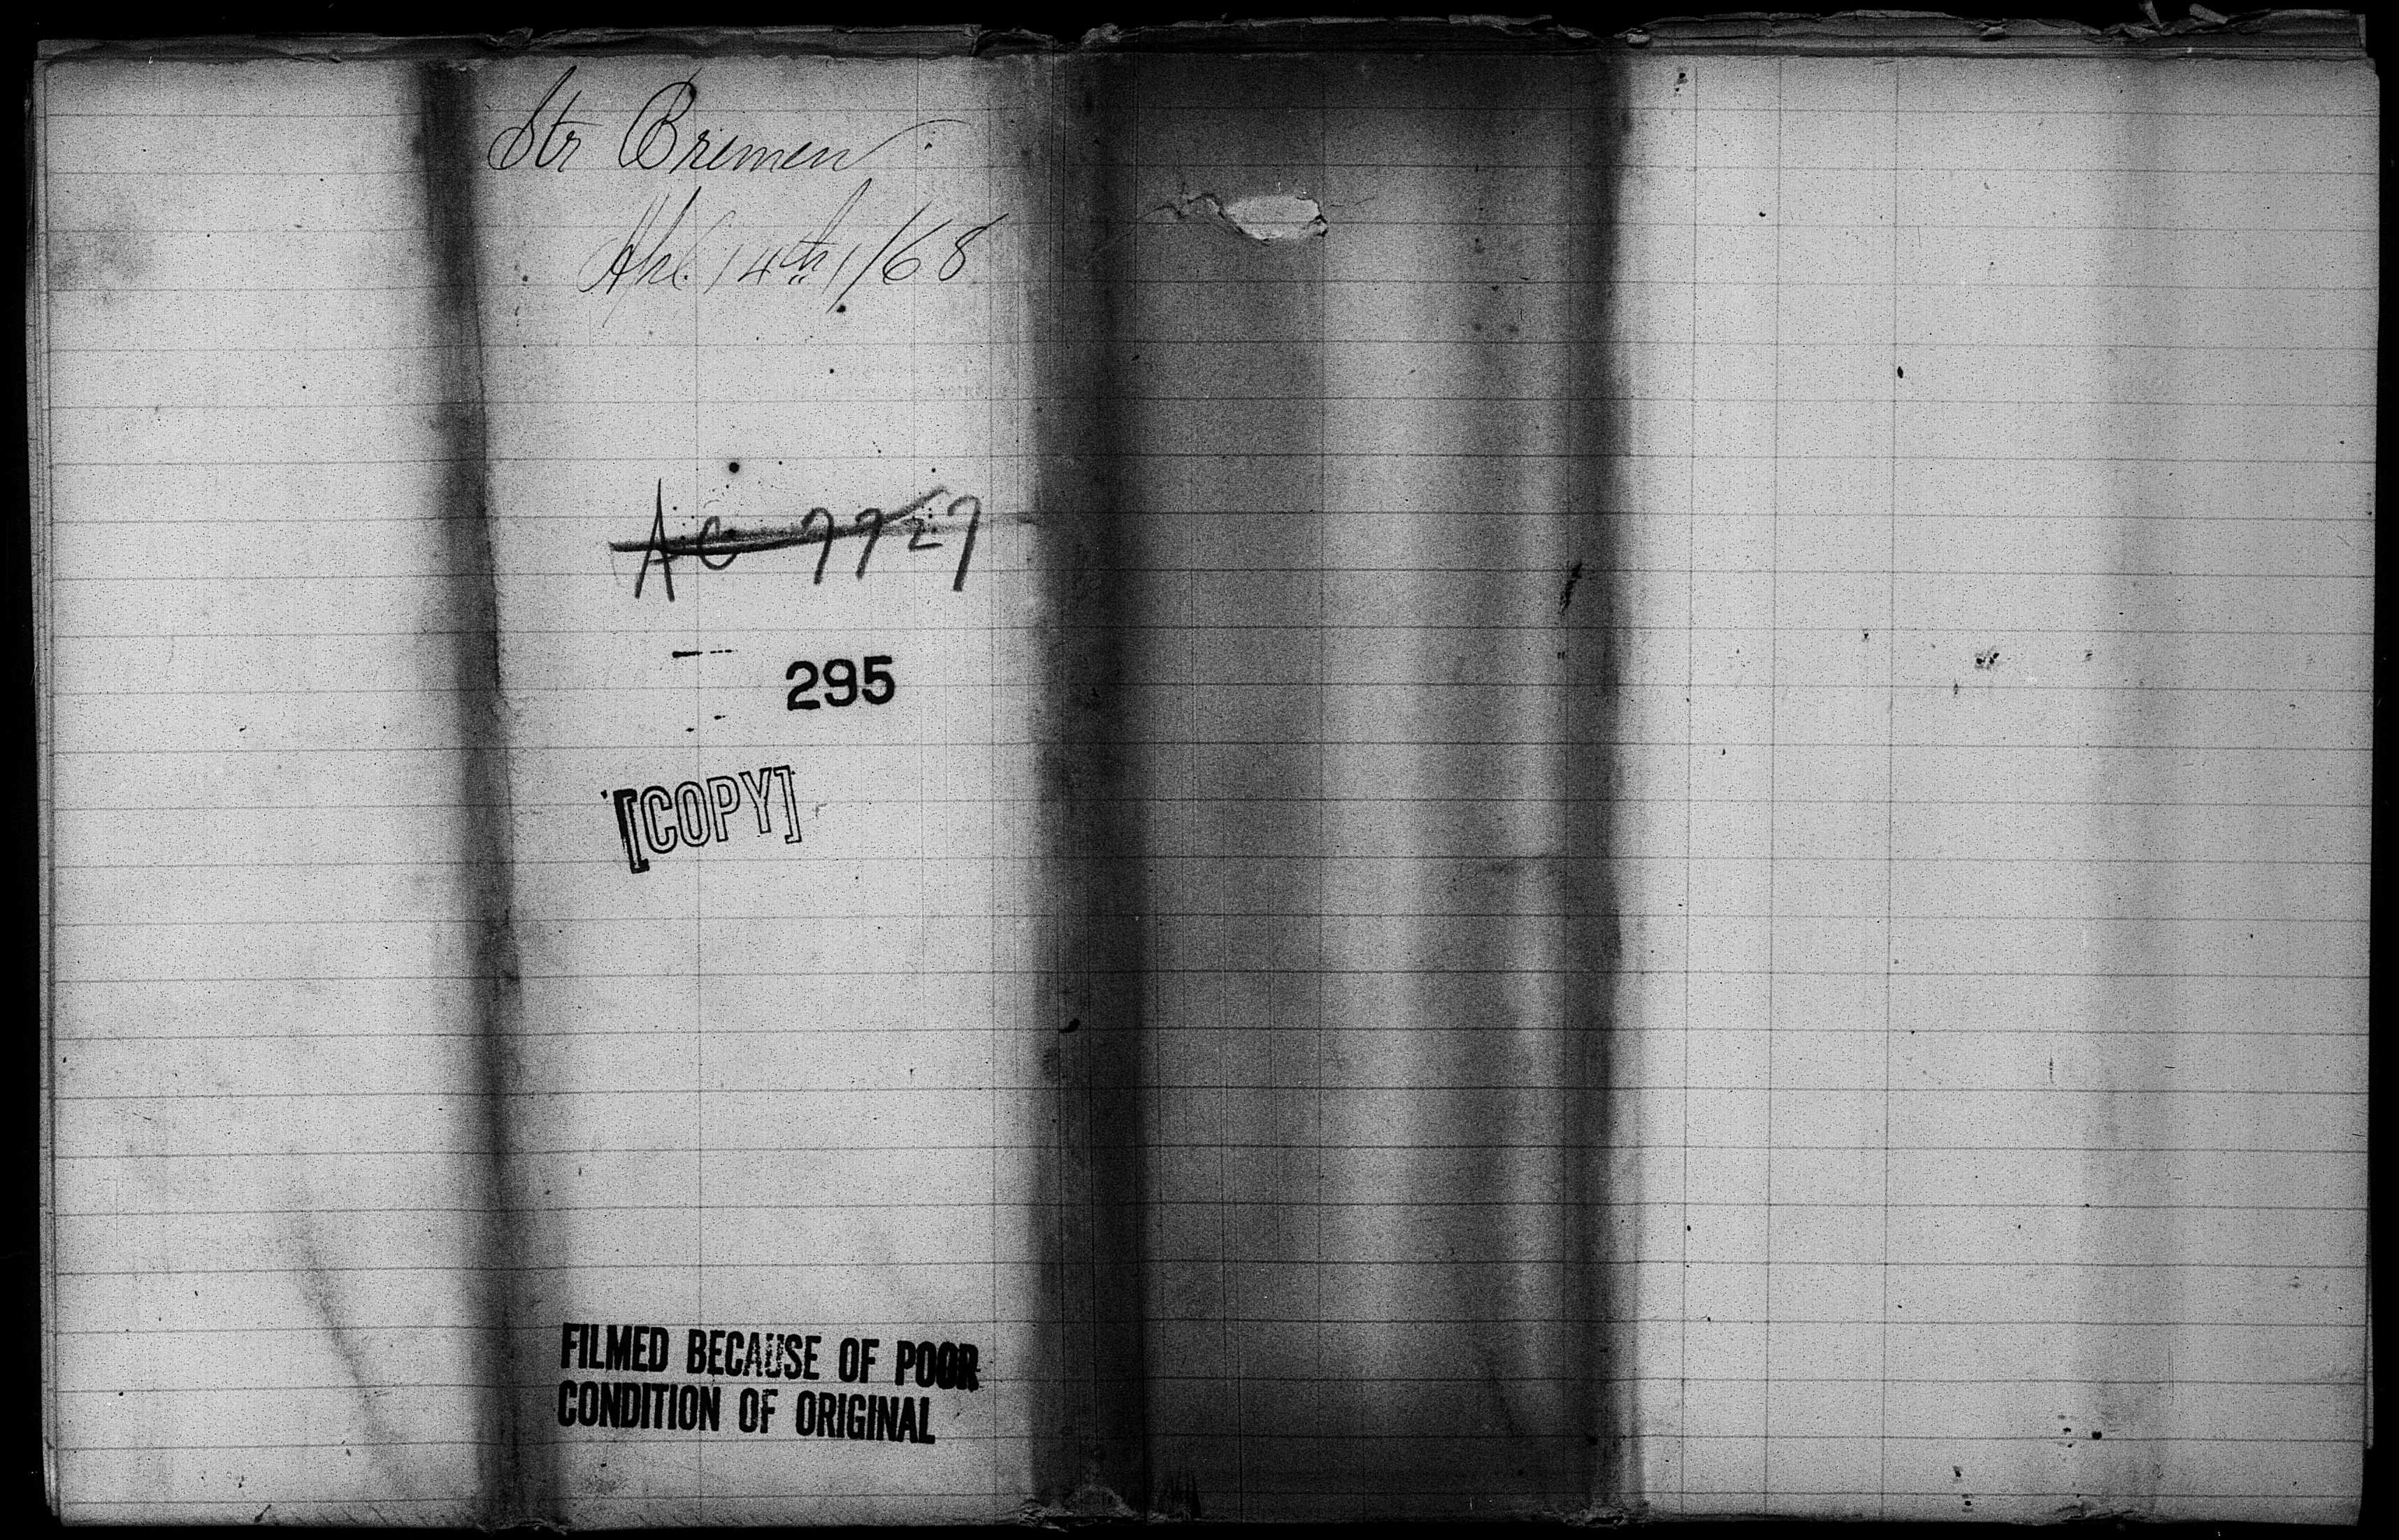 Str Bremen
Apl. 14th 1/68
AC 7727
295
[COPY]
FILMED BECAUSE OF POOR
CONDITION OF ORIGINAL